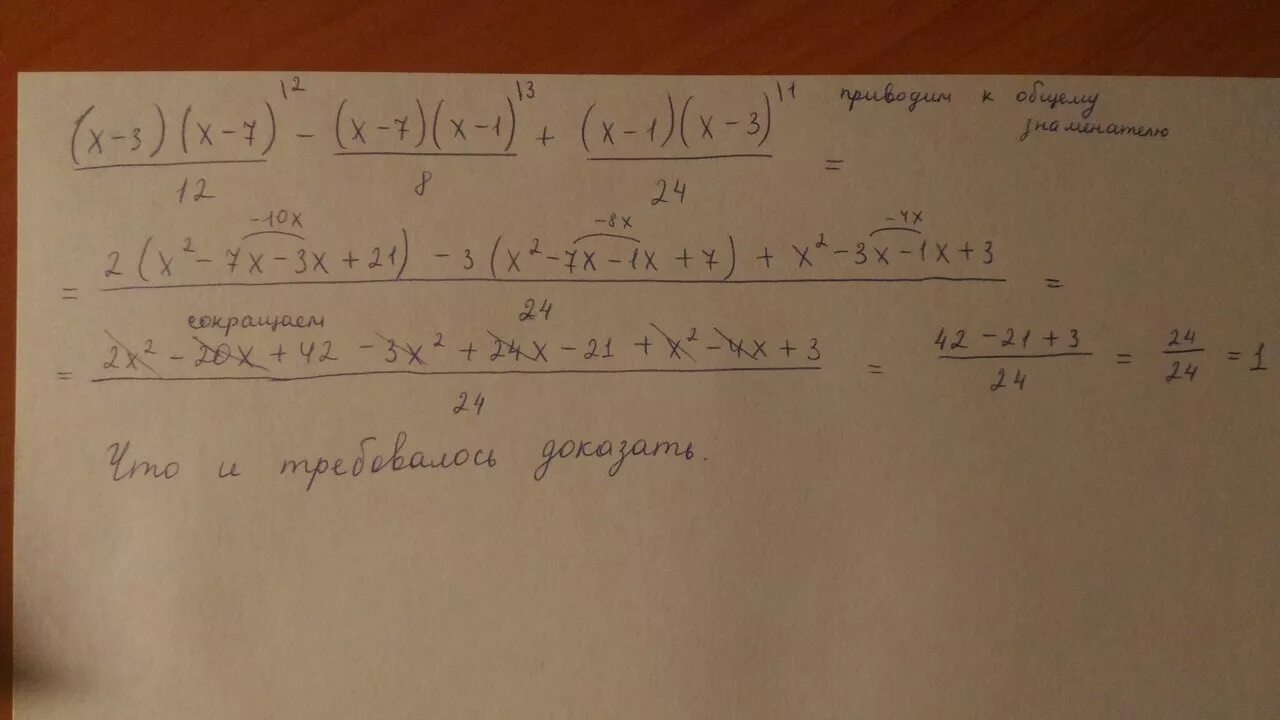 (x-3)(x-7)/12 \2 - (x-7)(x-1)/8 \3 + (x-1)(x-3)/24 \1 = приводим к общему знаменателю
-10x -8x -4x
= (2(x² - 7x - 3x + 21) - 3(x² - 7x - 1x + 7) + x² - 3x - 1x + 3)/24 =
сокращаем
= (2x² - 20x + 42 - 3x² + 24x - 21 + x² - 4x + 3)/24 = (42 - 21 + 3)/24 = 24/24 = 1
Что и требовалось доказать.